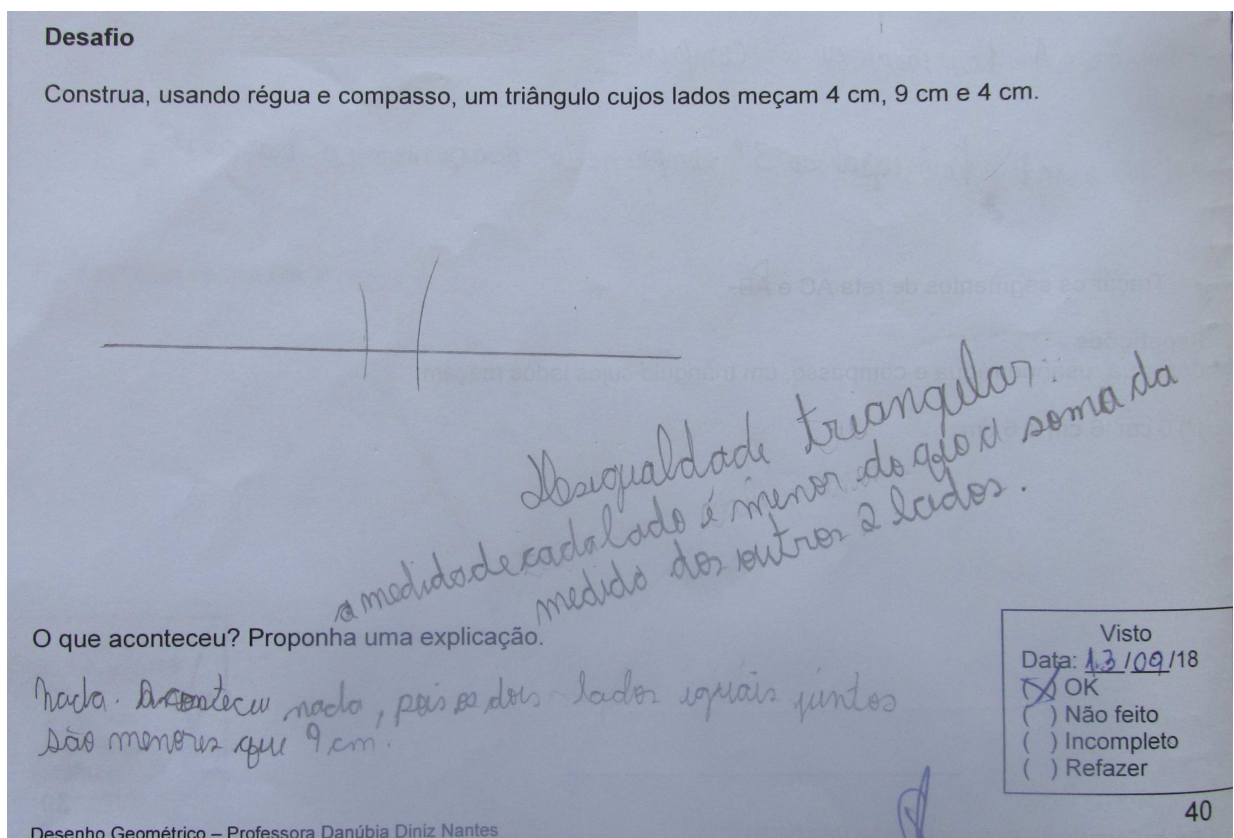 Desafio
Construa, usando régua e compasso, um triângulo cujos lados meçam 4 cm, 9 cm e 4 cm.
Desigualdade triangular:
a medida de cada lado é menor do que a soma da
medida dos outros 2 lados.
O que aconteceu? Proponha uma explicação.
Nada. Aconteceu nada, pois os dois lados iguais juntos
são menores que 9 cm.
Visto
Data: 13/09/18
(X) OK
( ) Não feito
( ) Incompleto
( ) Refazer
40
Desenho Geométrico – Professora Danúbia Diniz Nantes